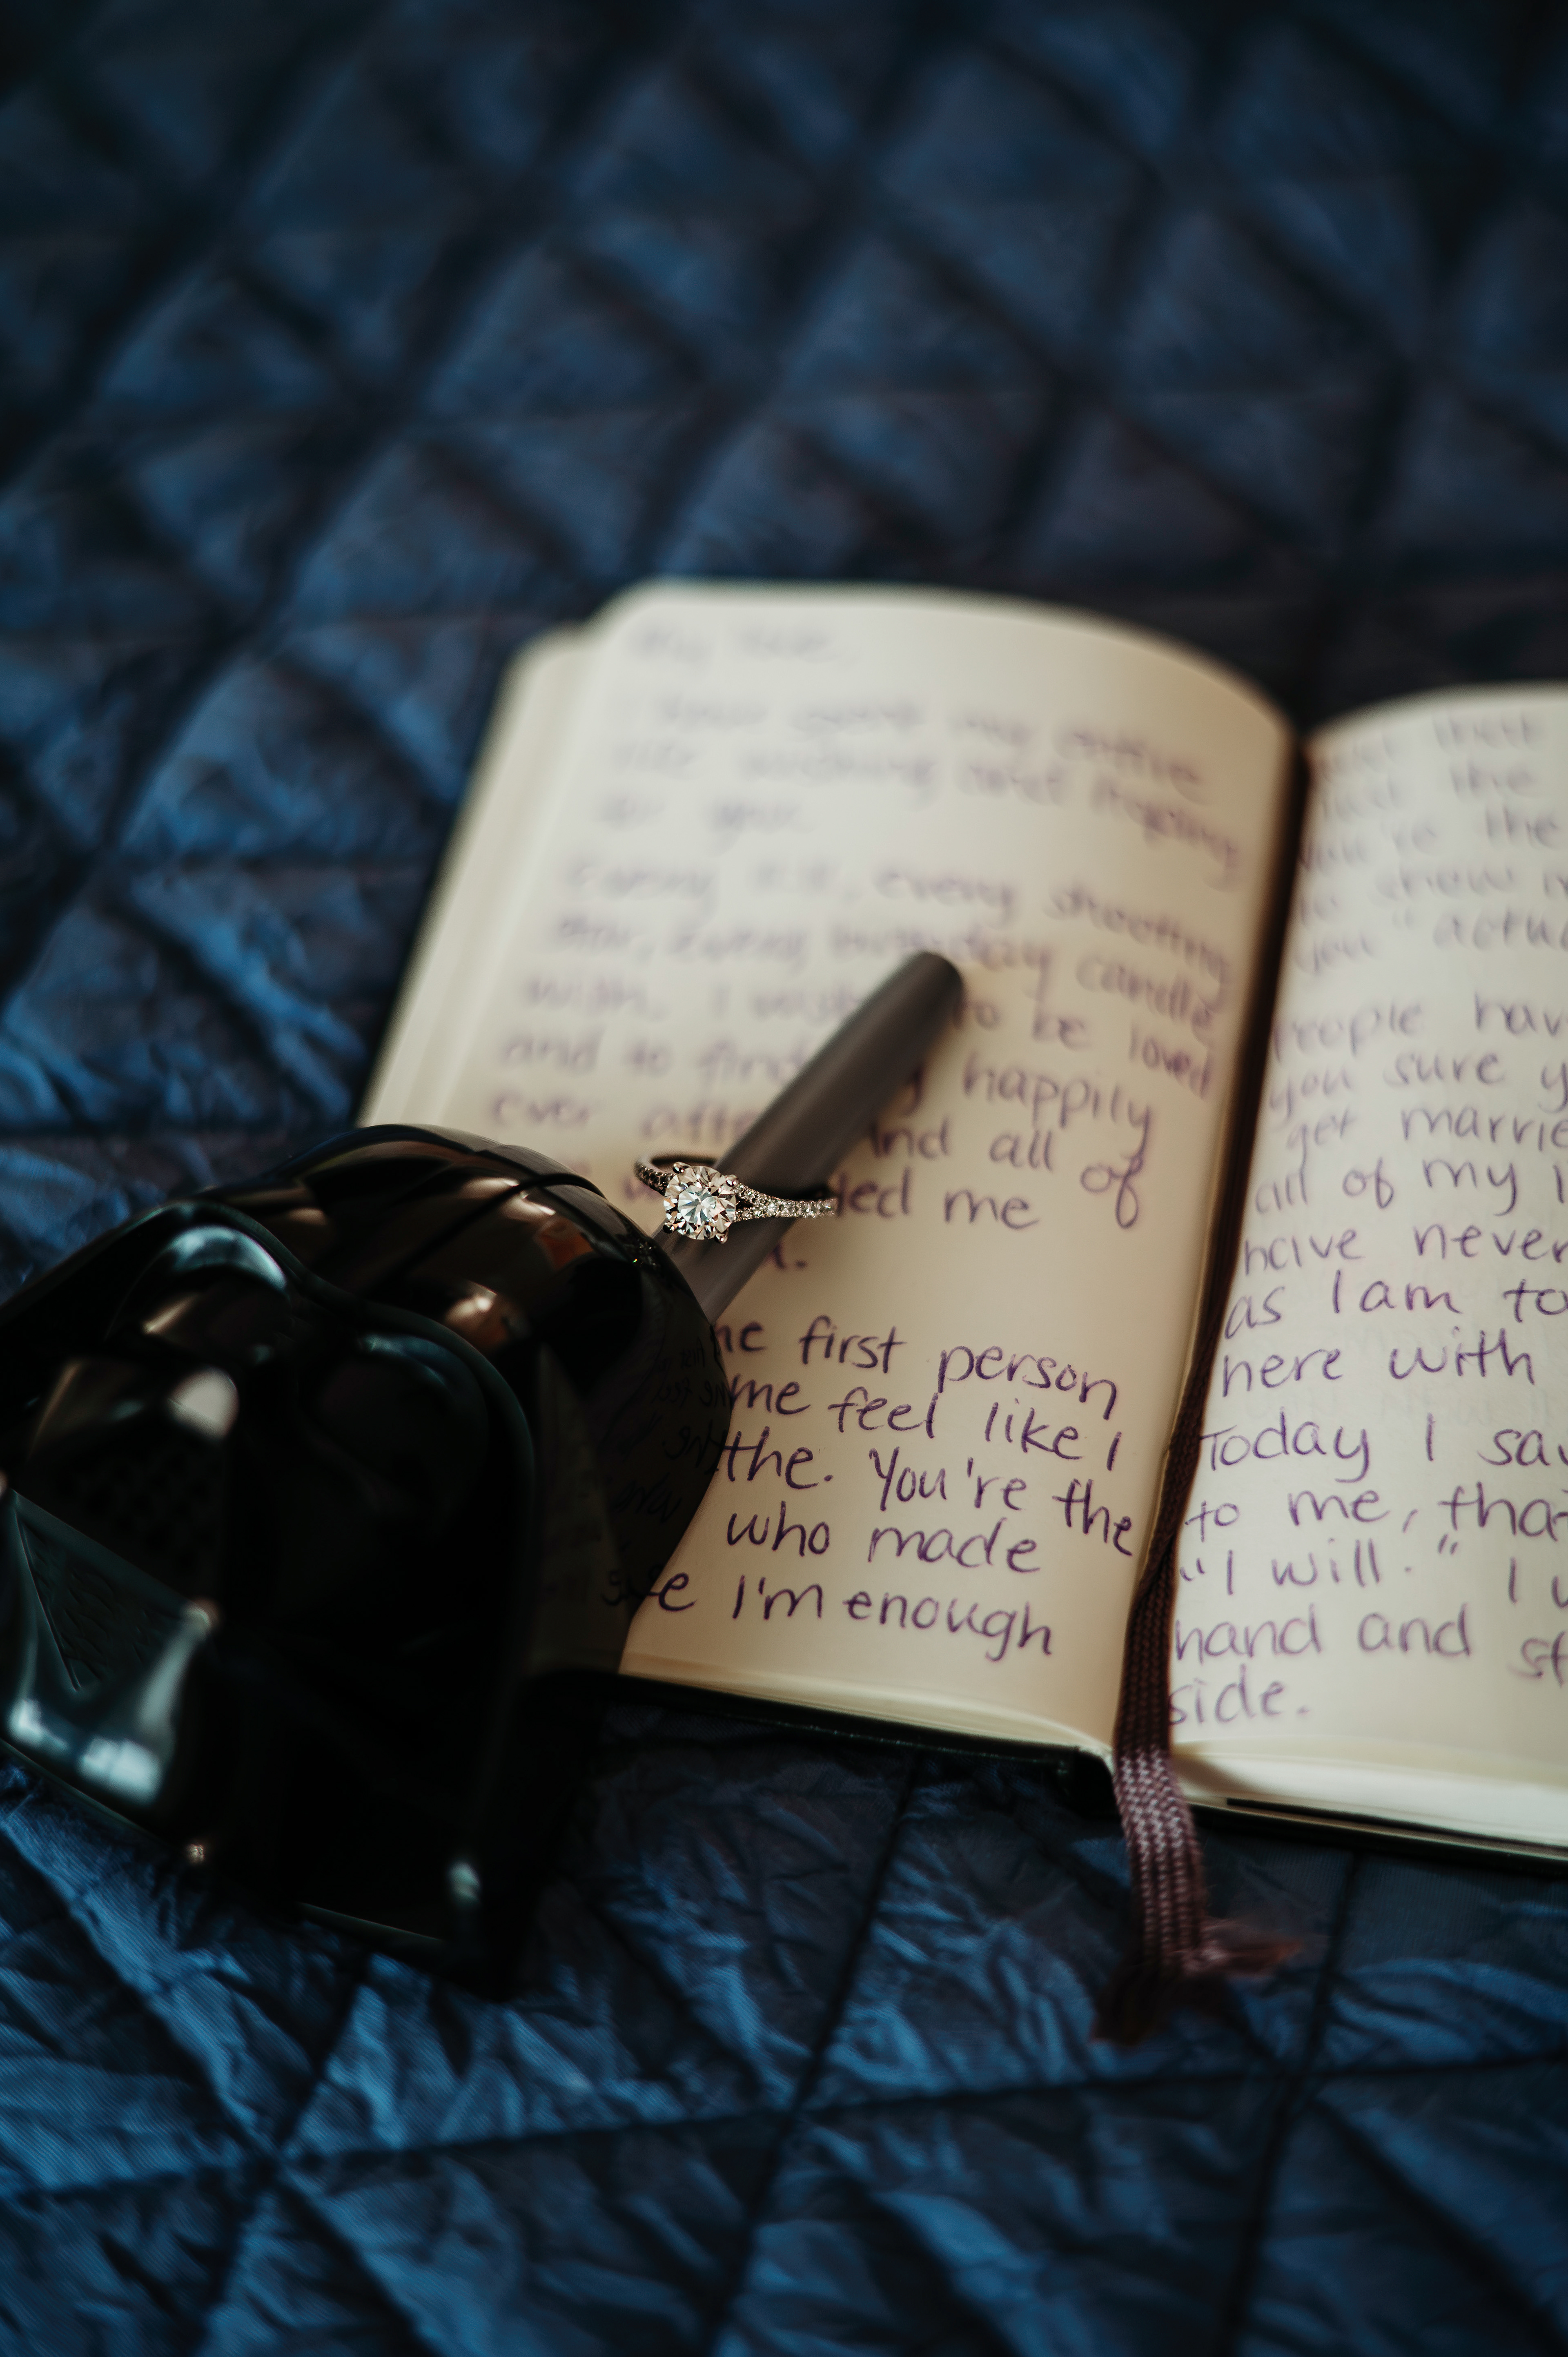 I have spent my entire
life wishing and hoping
for you.
Every 11:11, every shooting
star, every birthday candle
wish. I wish to be loved
and to find my happily
ever after. And all of
led me
he first person
me feel like I
the. You're the
who made
I'm enough
that
the
you're the
to show
you" actu
People hav
you sure y
get marrie
all of my l
have never
as I am to
here with
Today I sa
to me, tha
"I will." I
hand and st
side.